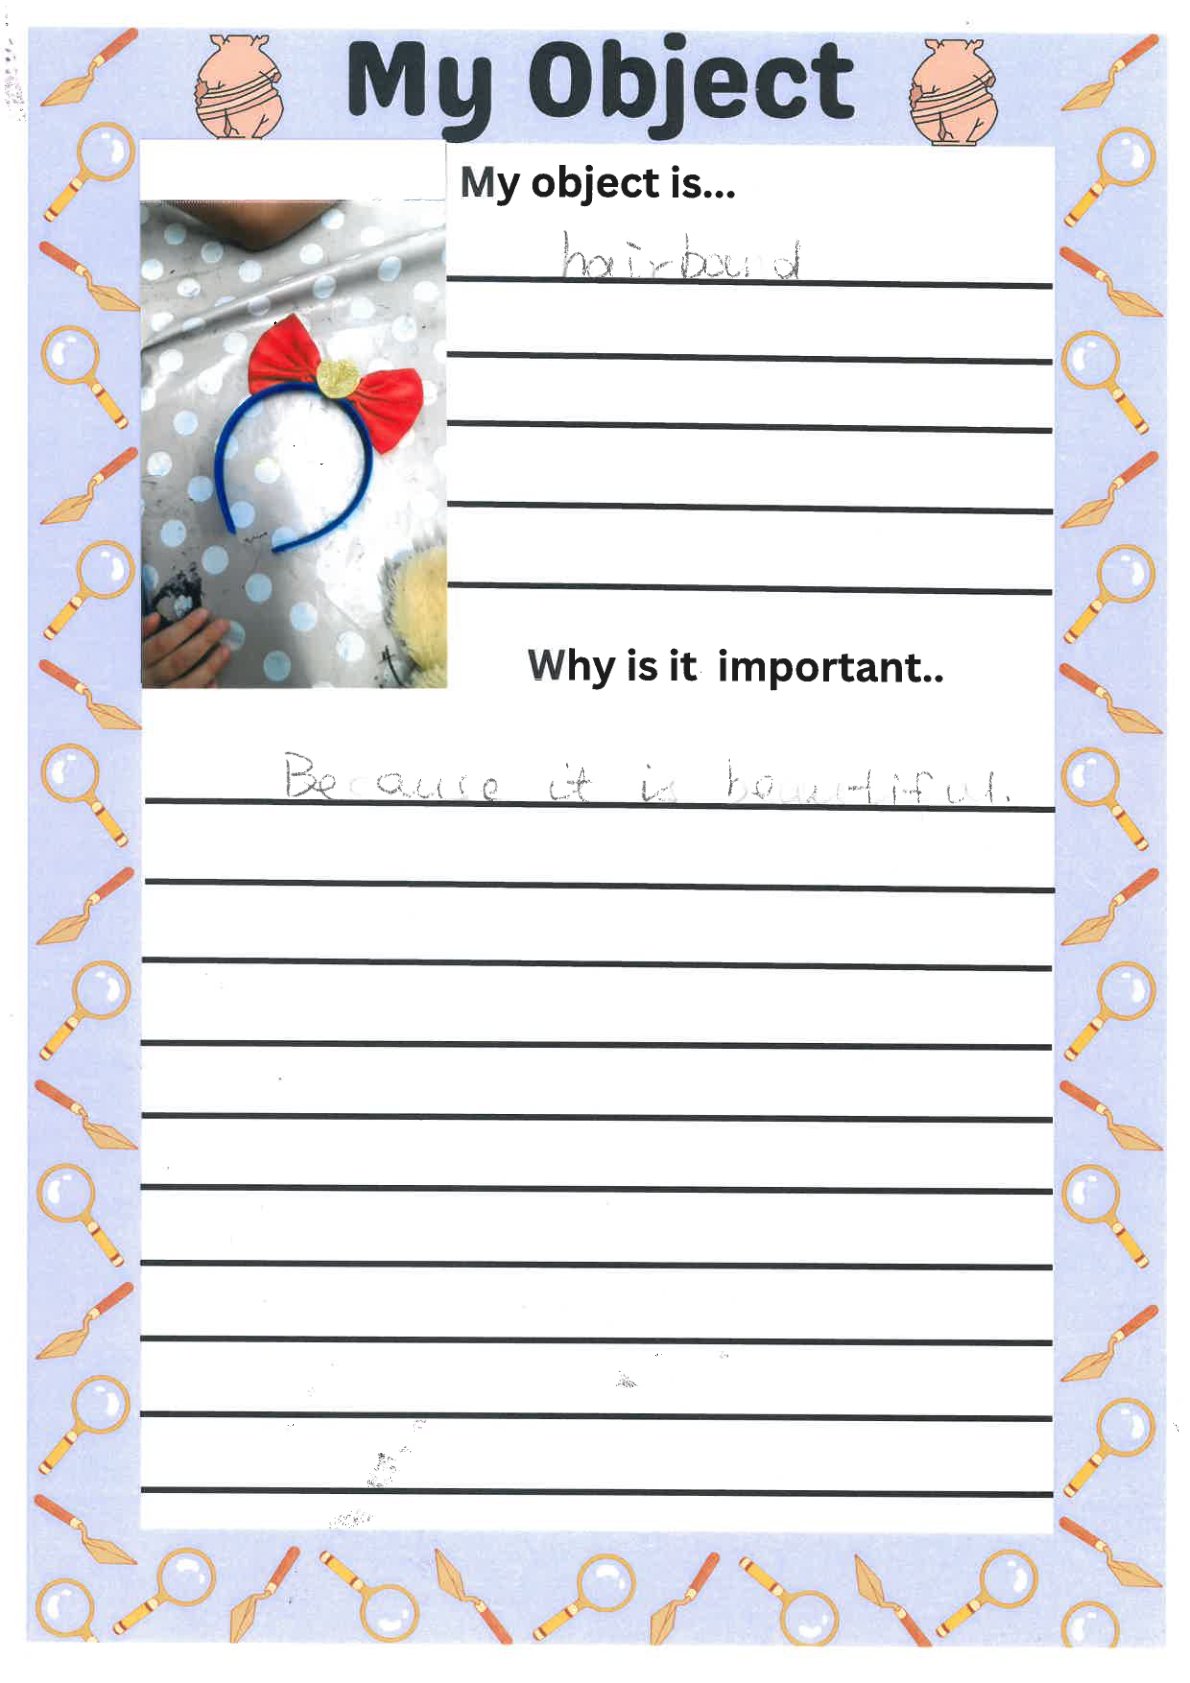 My Object
My object is...
hairband
Why is it important..
Because it is beautiful.